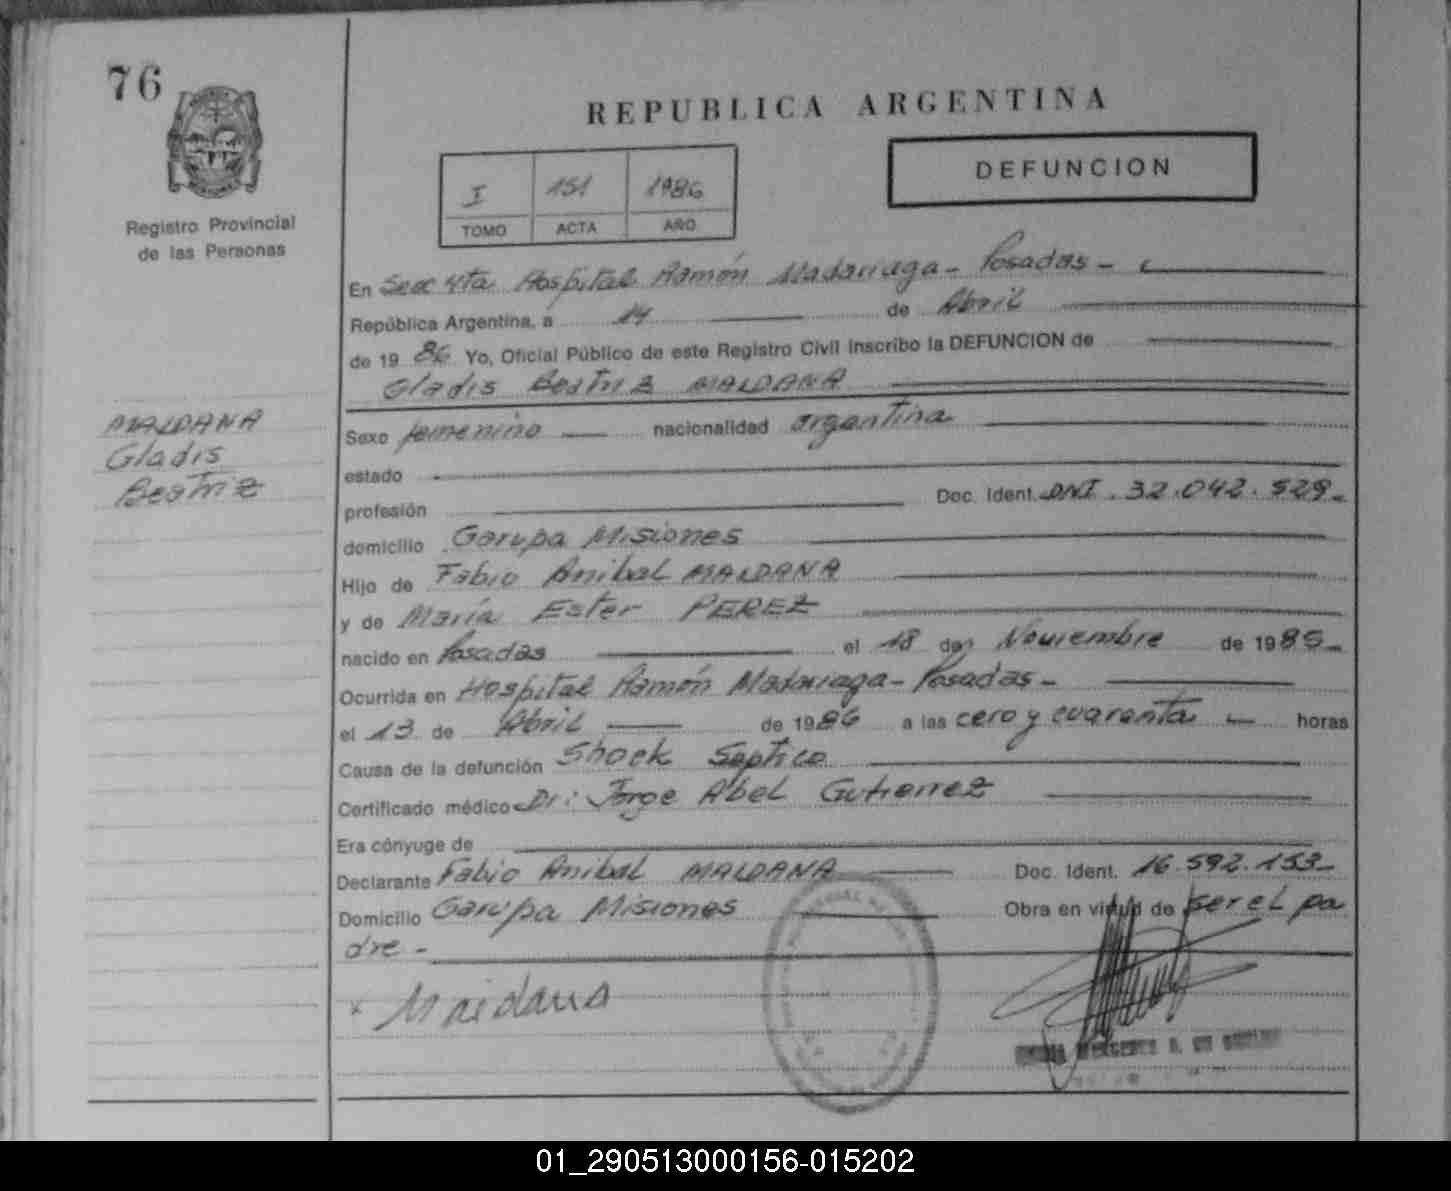 76
REPUBLICA ARGENTINA
DEFUNCION
I 151 1986
TOMO ACTA AÑO
Registro Provincial
de las Personas
En Secc 4ta Hospital Ramón Madariaga - Posadas -
República Argentina, a 14 de Abril
de 1986 Yo, Oficial Público de este Registro Civil inscribo la DEFUNCION de
Gladis Beatriz MALDANA
MALDANA
Gladis
Beatriz
Sexo femenino nacionalidad argentina
estado
profesión Doc. Ident. DNI. 32.042.529-
domicilio Garupa Misiones
Hijo de Fabio Anibal MALDANA
y de María Ester PEREZ
nacido en Posadas el 18 de Noviembre de 1985-
Ocurrida en Hospital Ramón Madariaga - Posadas -
el 13 de Abril de 1986 a las cero y cuarenta horas
Causa de la defunción Shock Septico
Certificado médico Dr: Jorge Abel Gutierrez
Era cónyuge de
Declarante Fabio Anibal MALDANA Doc. Ident. 16.592.153-
Domicilio Garupa Misiones Obra en virtud de ser el pa
dre -
x Maidana
01_290513000156-015202